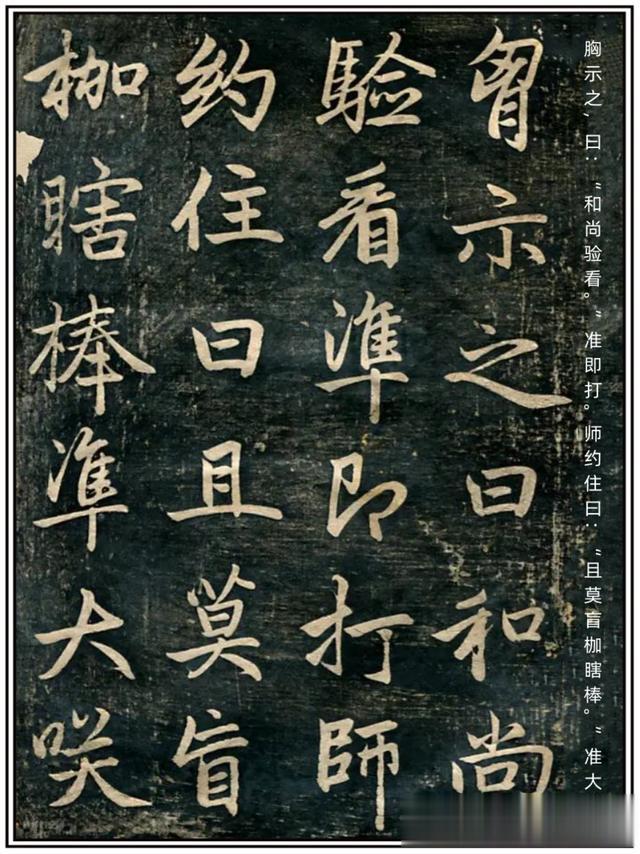 胸示之，曰：“和尚验看。”准即打。师约住曰：“且莫盲枷瞎棒。”准大
胷示之曰和尚
驗看準即打師
約住曰且莫盲
枷瞎棒準大咲